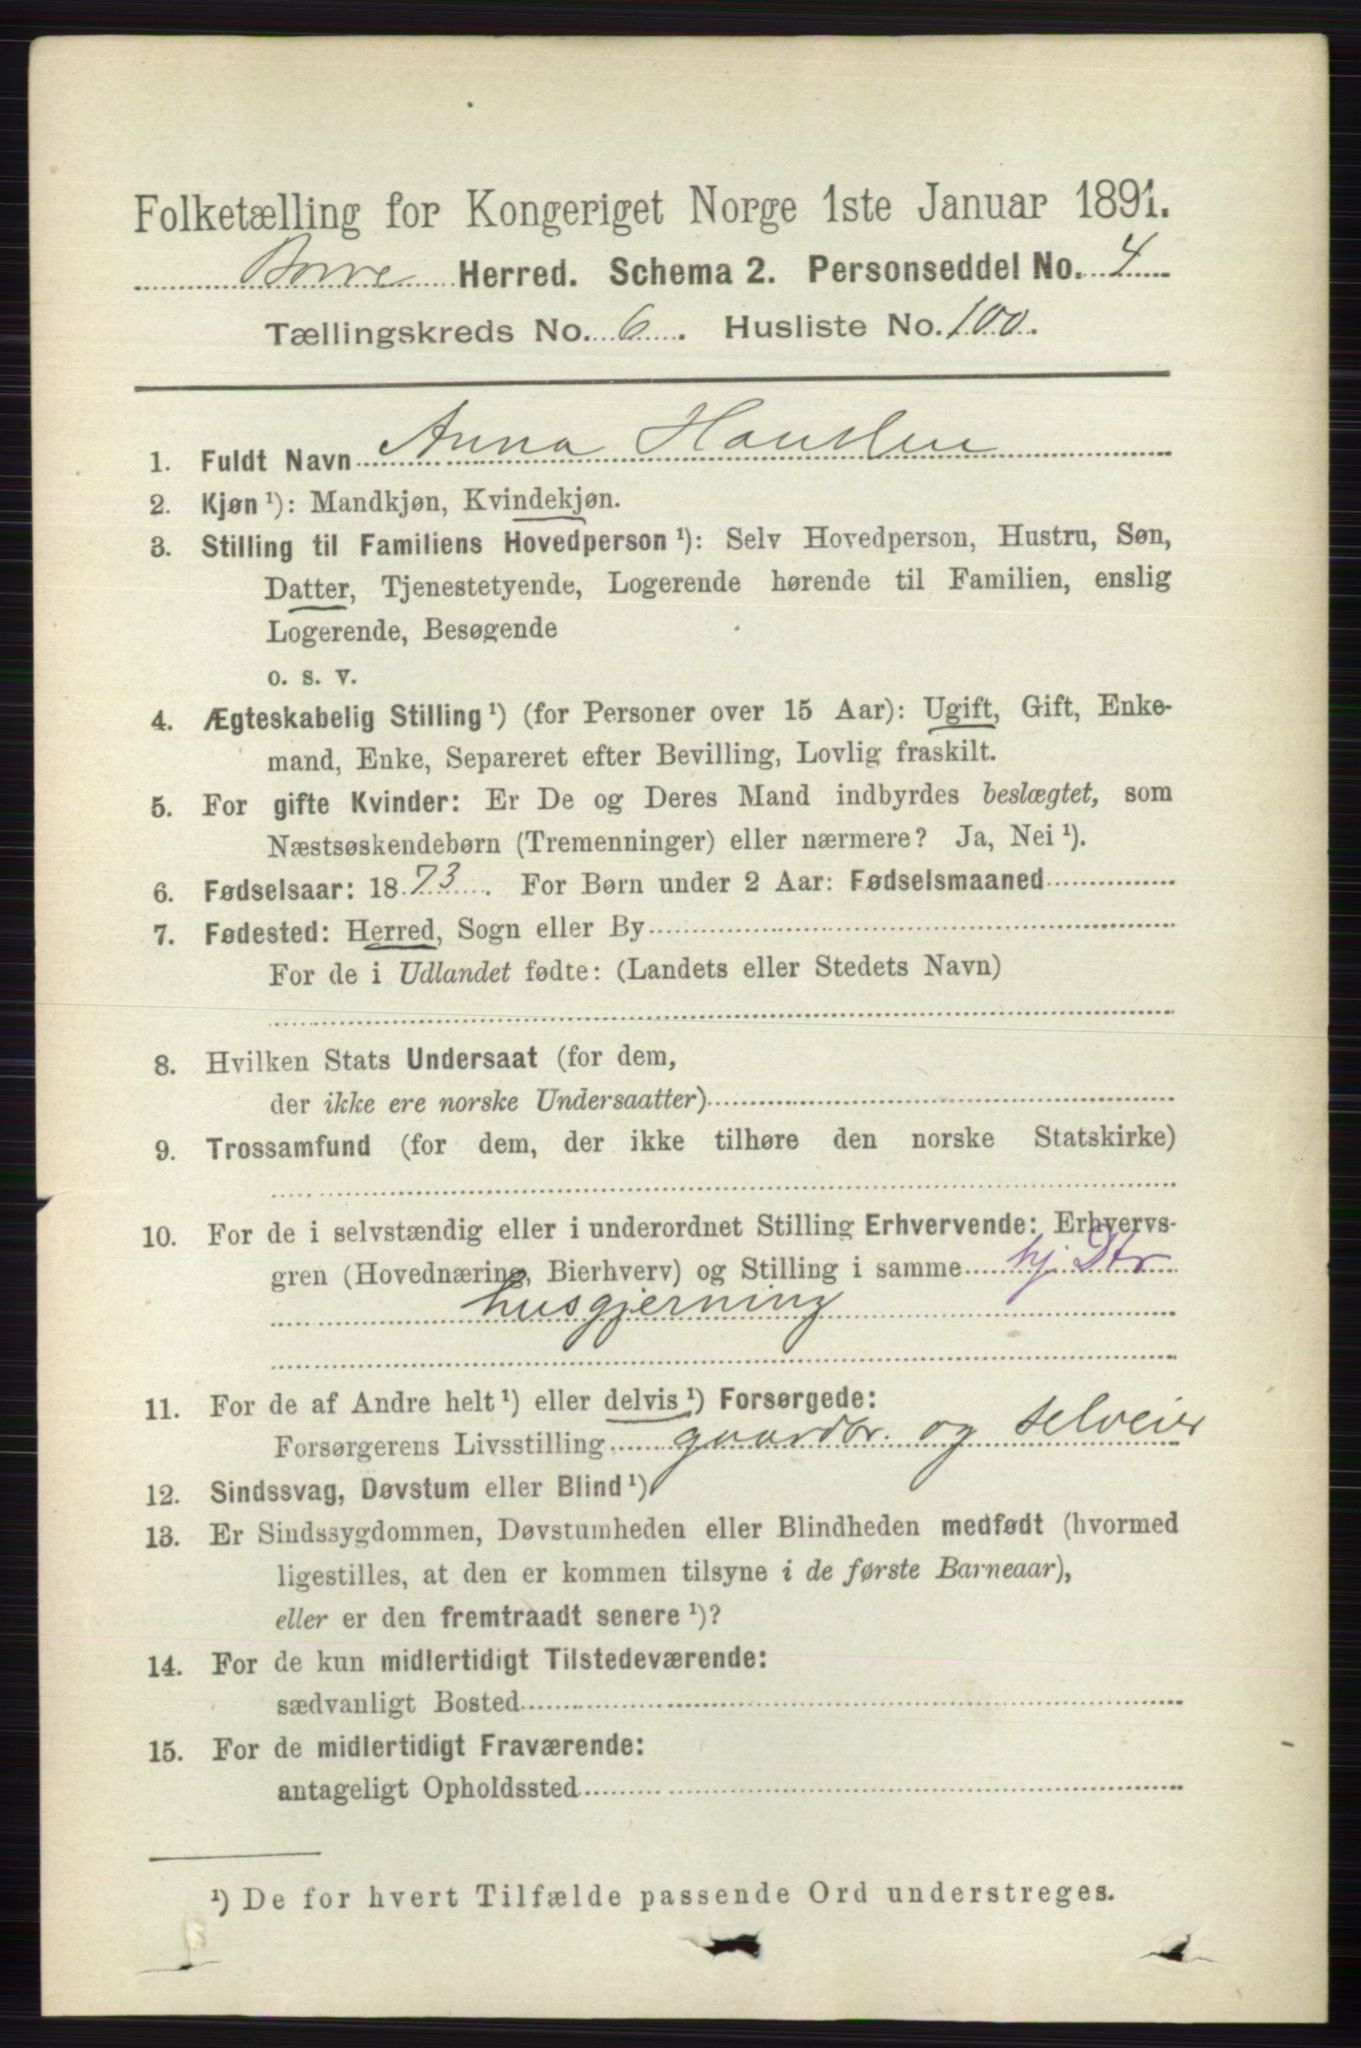 Folketælling for Kongeriget Norge 1ste Januar 1891.
Borre Herred. Schema 2. Personseddel No. 4
Tællingskreds No. 6. Husliste No. 100.
1. Fuldt Navn Anna Hanslen
2. Kjøn ¹): Mandkjøn, Kvindekjøn.
3. Stilling til Familiens Hovedperson ¹): Selv Hovedperson, Hustru, Søn,
Datter, Tjenestetyende, Logerende hørende til Familien, enslig
Logerende, Besøgende
o. s. v.
4. Ægteskabelig Stilling ¹) (for Personer over 15 Aar): Ugift, Gift, Enke-
mand, Enke, Separeret efter Bevilling, Lovlig fraskilt.
5. For gifte Kvinder: Er De og Deres Mand indbyrdes beslægtet, som
Næstsøskendebørn (Tremenninger) eller nærmere? Ja, Nei ¹).
6. Fødselsaar: 1873. For Børn under 2 Aar: Fødselsmaaned
7. Fødested: Herred, Sogn eller By
For de i Udlandet fødte: (Landets eller Stedets Navn)
8. Hvilken Stats Undersaat (for dem,
der ikke ere norske Undersaatter)
9. Trossamfund (for dem, der ikke tilhøre den norske Statskirke)
10. For de i selvstændig eller i underordnet Stilling Erhvervende: Erhvervs-
gren (Hovednæring, Bierhverv) og Stilling i samme hj. Dtr
husgjerning
11. For de af Andre helt ¹) eller delvis ¹) Forsørgede:
Forsørgerens Livsstilling gaardbr. og selveier
12. Sindssvag, Døvstum eller Blind ¹)
13. Er Sindssygdommen, Døvstumheden eller Blindheden medfødt (hvormed
ligestilles, at den er kommen tilsyne i de første Barneaar),
eller er den fremtraadt senere ¹)?
14. For de kun midlertidigt Tilstedeværende:
sædvanligt Bosted
15. For de midlertidigt Fraværende:
antageligt Opholdssted
¹) De for hvert Tilfælde passende Ord understreges.